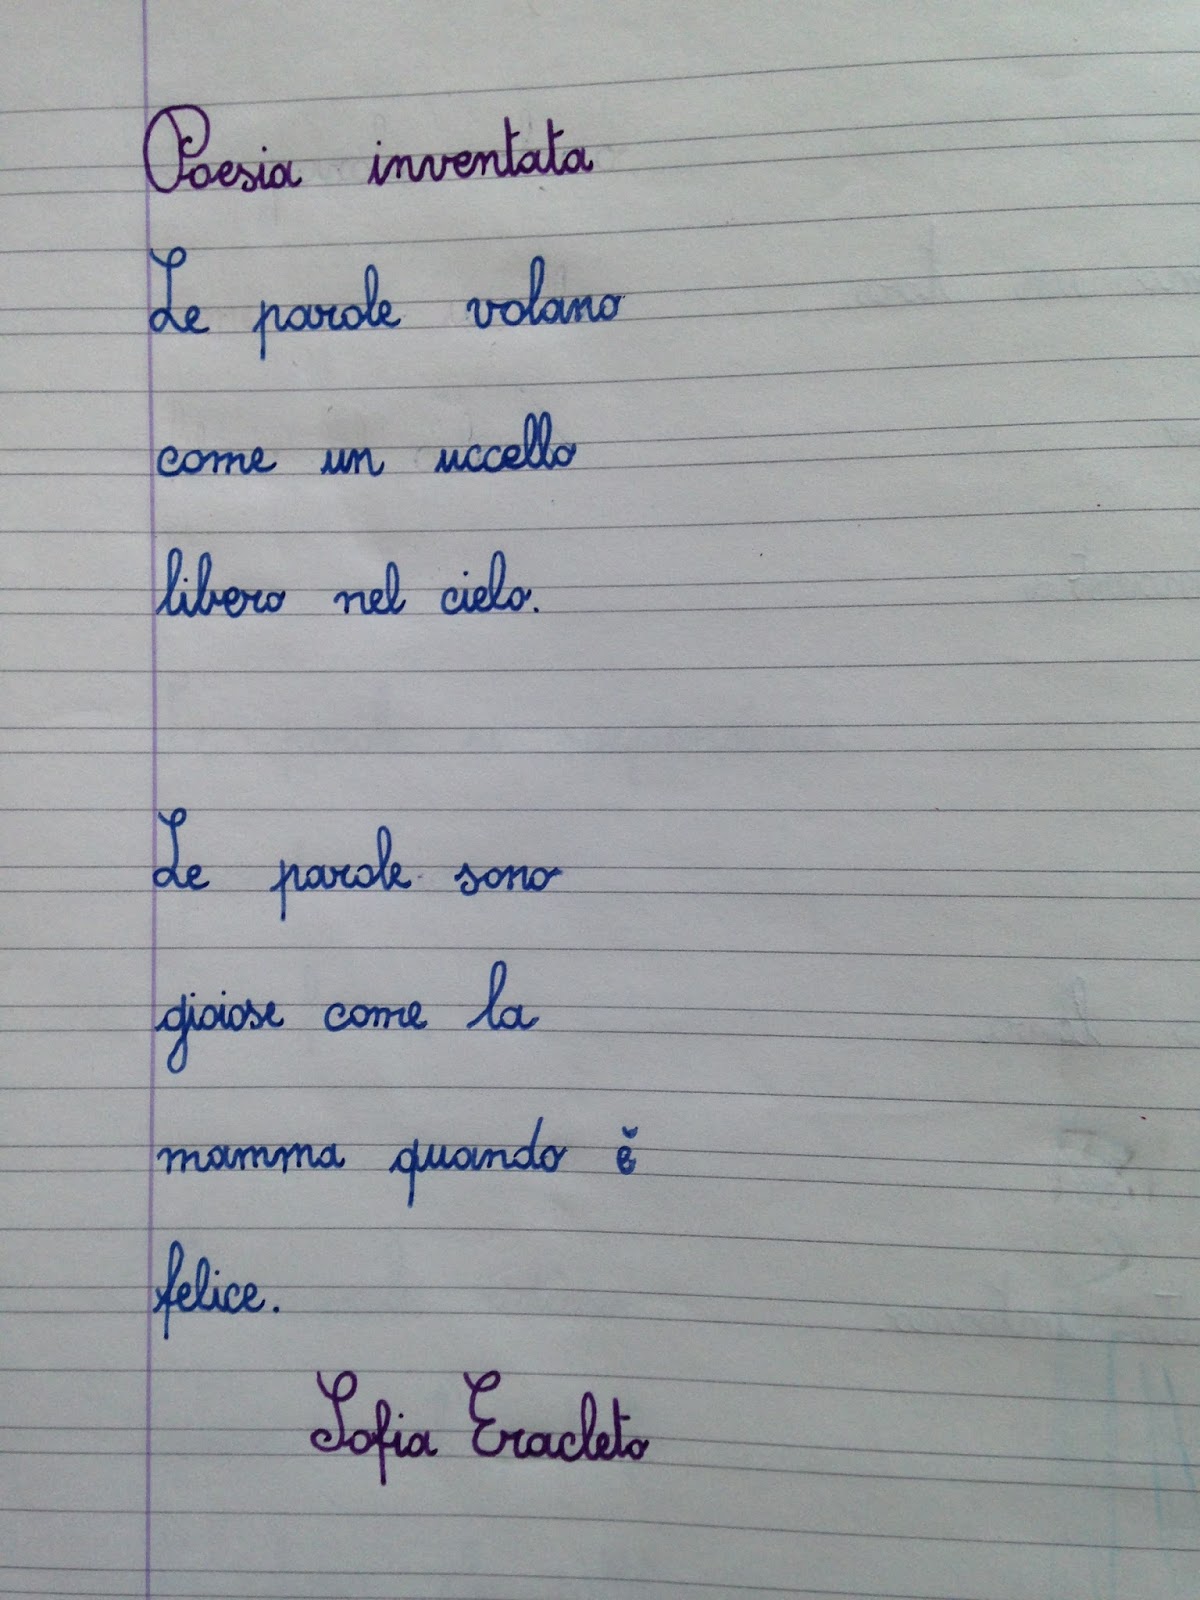 Poesia inventata
Le parole volano
come un uccello
libero nel cielo.
Le parole sono
gioiose come la
mamma quando è
felice.
Sofia Eracleto